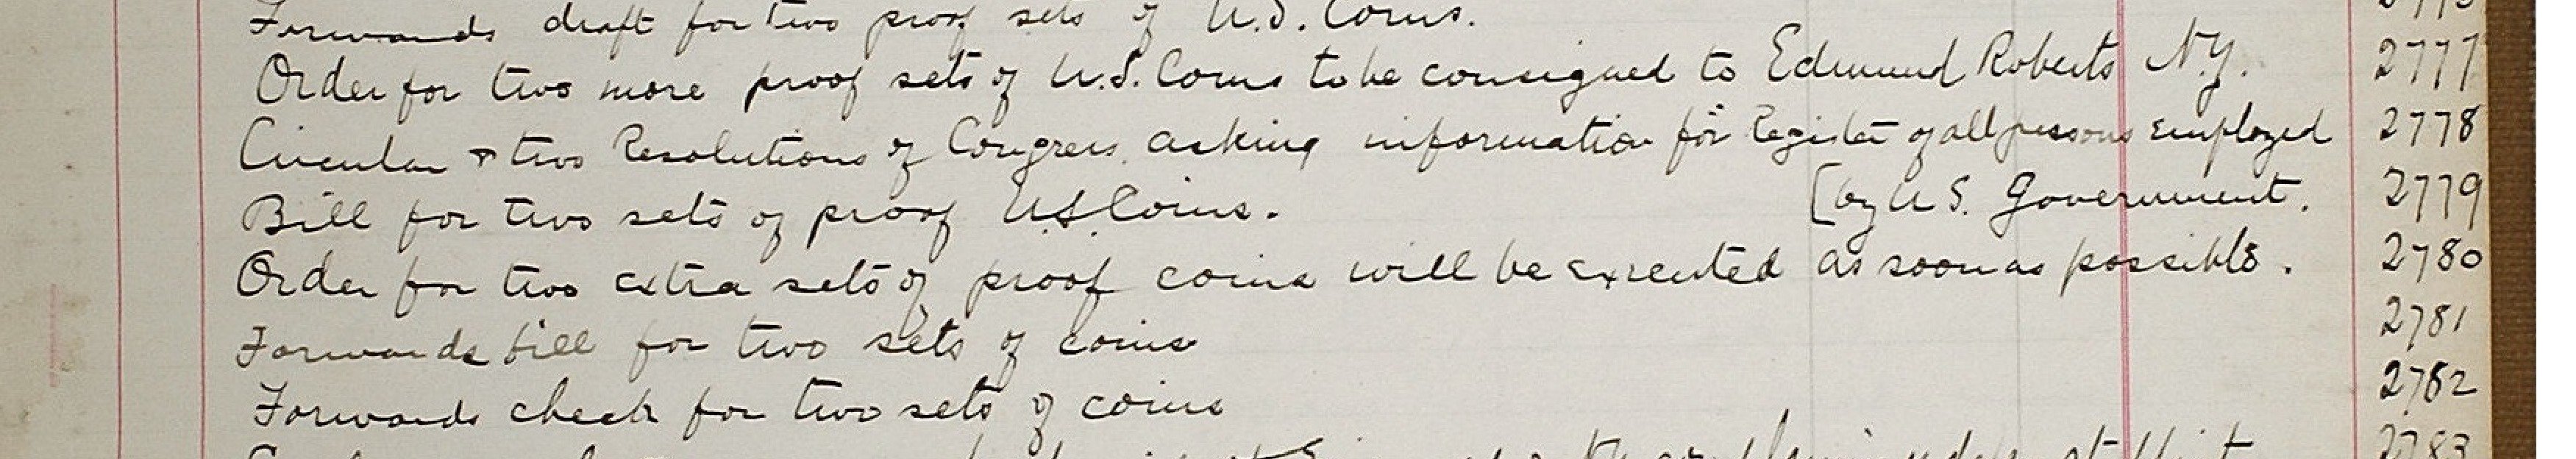 Forwards draft for two proof sets of U.S. Coins.
Order for two more proof sets of U.S. Coins to be consigned to Edmund Roberts N.Y. 2777
Circular & two Resolutions of Congress asking information for Register of all persons employed 2778
[by U S. Government.
Bill for two sets of proof U.S. Coins. 2779
Order for two extra sets of proof coins will be executed as soon as possible. 2780
Forwards bill for two sets of coins 2781
Forwards check for two sets of coins 2782
2783